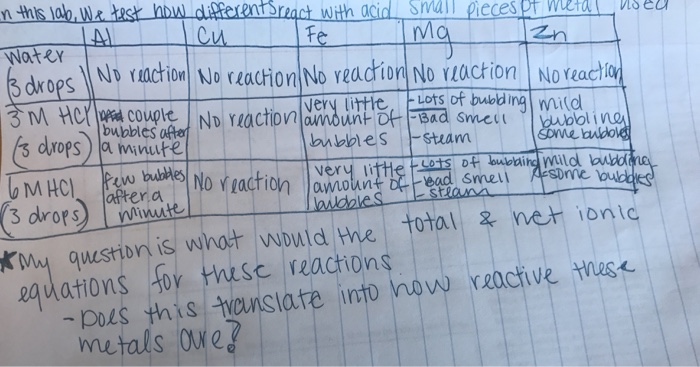 n this lab, We test how different s react with acid small pieces of metal used
Al Cu Fe Mg Zn
Water (3 drops) No reaction No reaction No reaction No reaction No reaction
3 M HCl (3 drops) couple bubbles after a minute No reaction very little amount of bubbles - Lots of bubbling - Bad smell - steam mild bubbling some bubbles
6 M HCl (3 drops) few bubbles after a minute No reaction very little amount of bubbles - Lots of bubbling - Bad smell - steam mild bubbling some bubbles
*My question is what would the total & net ionic
equations for these reactions
- Does this translate into how reactive these
metals are?